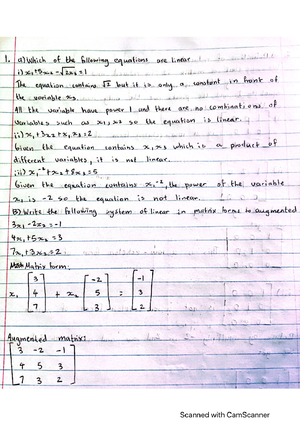 1. a) Which of the following equations are linear
i) x₁+5x₂-√2x₃=1
The equation contains √2 but it is only a constant in front of
the variable x₃.
All the variable have power 1 and there are no combinations of
variables such as x₁x₂ so the equation is linear.
ii) x₁+3x₂+x₁x₃=2
Given the equation contains x₁x₃ which is a product of
different variables, it is not linear.
iii) x₁⁻²+x₂+8x₃=5
Given the equation contains x₁⁻², the power of the variable
x₁ is -2 so the equation is not linear.
B) Write the following system of linear in matrix form to augmented
3x₁-2x₂=-1
4x₁+5x₂=3
7x₁+3x₂=2
Matrix form:
x₁ [3 4 7] + x₂ [-2 5 3] = [-1 3 2]
Augmented matrix:
3 -2 -1
4 5 3
7 3 2
Scanned with CamScanner